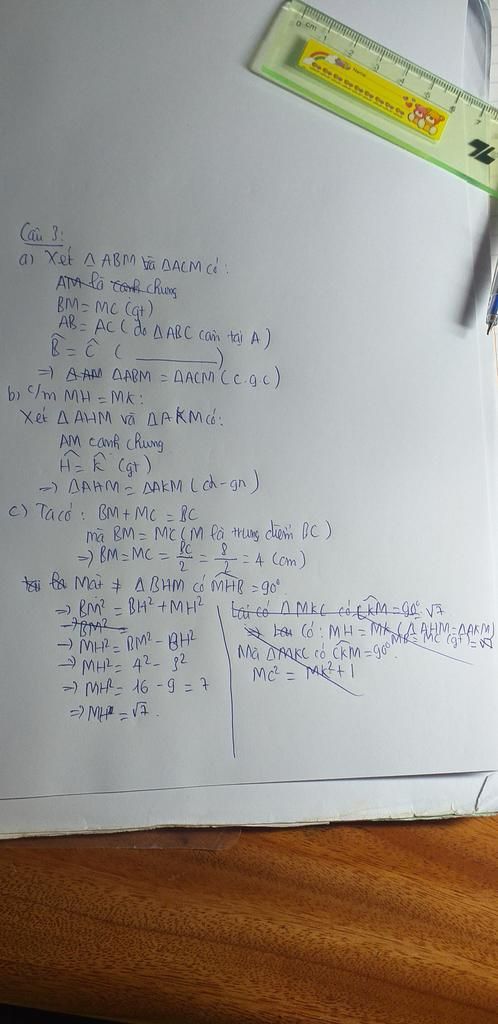 0 cm 1 2 3 4 5 6 7
Name:
Câu 3:
a) Xét △ ABM và △ACM có:
AM là cạnh chung
BM = MC (gt)
AB = AC (do △ABC cân tại A)
B̂ = Ĉ ( ________ )
=> △AM △ABM = △ACM (c.g.c)
b) c/m MH = MK:
Xét △AHM và △AKM có:
AM cạnh chung
Ĥ = K̂ (gt)
=> △AHM = △AKM (ch-gn)
c) Ta có: BM + MC = BC
mà BM = MC (M là trung điểm BC)
=> BM = MC = BC/2 = 8/2 = 4 (cm)
Mặt ≠ △BHM có MHB = 90°
=> BM² = BH² + MH²
=> BM² =
=> MH² = BM² - BH²
=> MH² = 4² - 3²
=> MH² = 16 - 9 = 7
=> MH = √7.
Lại có △MKC có CKM = 90° √7
Có: MH = MK (△AHM = △AKM)
MB = MC (gt) = √7
Mà △MKC có CKM = 90°.
MC² = MK² + 1